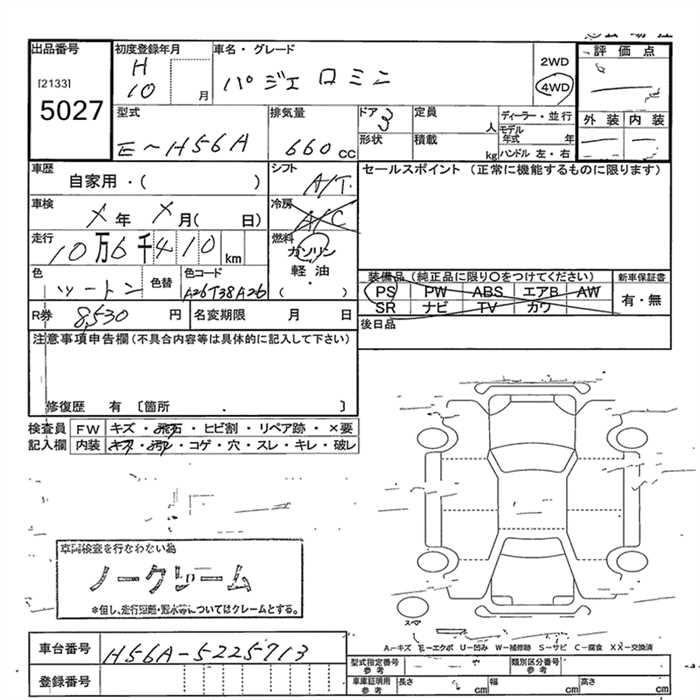 出品番号
[2133]
5027
初度登録年月
H
10 月
車名・グレード
パジェロミニ
2WD
4WD
評価点
外装 内装
型式
E-H56A
排気量
660 cc
ドア 3
形状
定員
人
積載
kg
ディーラー・並行
モデル年式 年
ハンドル 左・右
車歴
自家用・( )
シフト
A/T
セールスポイント (正常に機能するものに限ります)
車検
X年 X月( 日)
冷房
A/C
走行
10万6千410 km
燃料
ガソリン
軽油
( ・ )
色
ツートン
色替
色コード
A26T38A26
装備品 (純正品に限り○をつけてください)
PS PW ABS エアB AW
SR ナビ TV カワ
新車保証書
有・無
R券 8,530 円
名変期限 月 日
後日品
注意事項申告欄 (不具合内容等は具体的に記入して下さい)
修復歴 有 〔箇所 . 〕
検査員 FW キズ・飛石・ヒビ割・リペア跡・×要
記入欄 内装 キズ・汚れ・コゲ・穴・スレ・キレ・破レ
車両検査を行なわない為
ノークレーム
*但し、走行距離・冠水等についてはクレームとする。
スペア
A-キズ E-エクボ U-凹み W-補修跡 S-サビ C-腐食 XX-交換済
車台番号 H56A-5225713
登録番号
型式指定番号
参考
類別区分番号
参考
車庫証明用
参考
長さ cm 幅 cm 高さ cm